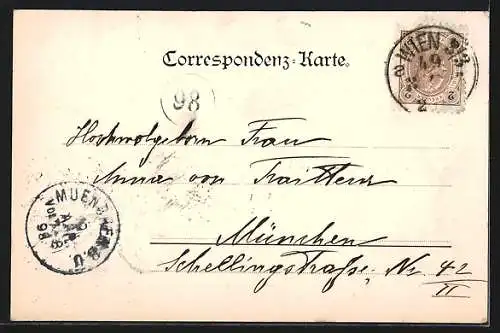 Correspondenz-Karte.
WIEN
49
2
98
Hochwolgeborn Frau
Anna von Traitteur
München
Schellingstraße Nr 42
II
MUENCHEN
98